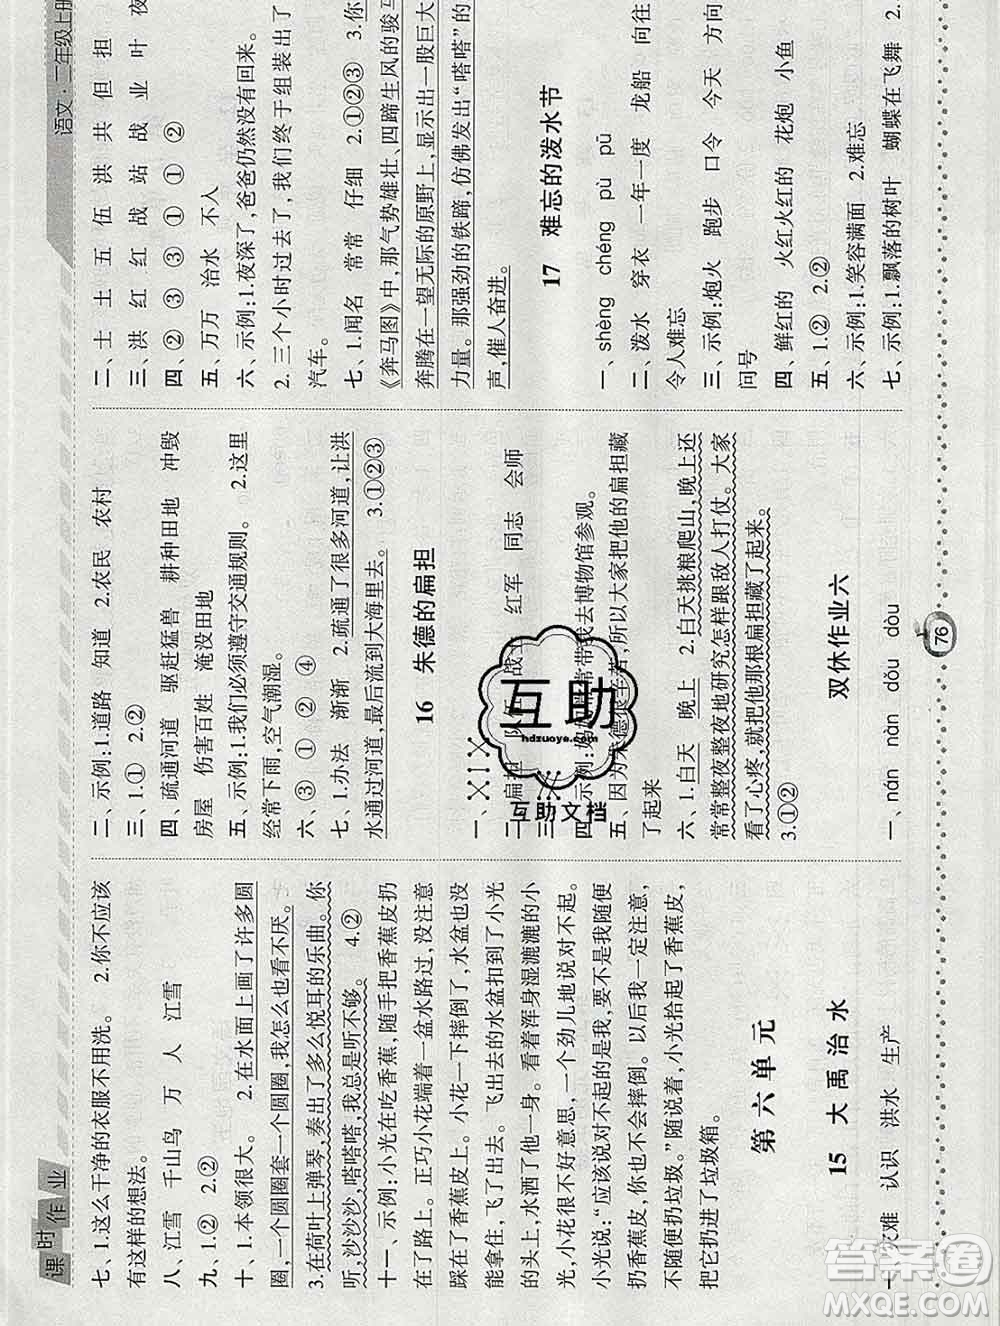 课时作业
语文·二年级上册
七、1.这么干净的衣服不用洗。 2.你不应该
有这样的想法。
八、江雪 千山鸟 万 人 江雪
九、1.② 2.②
十、1.本领很大。 2.在水面上画了许多圆
圈,一个圆圈套一个圆圈,我怎么也看不厌。
3.在荷叶上弹琴,奏出了多么悦耳的乐曲。你
听,沙沙沙,嗒嗒嗒,我总是听不够。 4.②
十一、示例:小光在吃香蕉,随手把香蕉皮扔
在了路上。正巧小花端着一盆水路过,没注意
踩在了香蕉皮上。小花一下摔倒了,水盆也没
能拿住,飞了出去。飞出去的水盆扣到了小光
的头上,水洒了他一身。看着浑身湿漉漉的小
光,小花很不好意思,一个劲儿地说对不起。
小光说:“应该说对不起的是我,要不是我随便
扔香蕉皮,你也不会摔倒。以后我一定注意,
不随便扔垃圾。”随说着,小光拾起了香蕉皮,
把它扔进了垃圾箱。
第六单元
15 大禹治水
一、灾难 认识 洪水 生产
二、示例:1.道路 知道 2.农民 农村
三、1.① 2.②
四、疏通河道 驱赶猛兽 耕种田地 冲毁
房屋 伤害百姓 淹没田地
五、示例:1.我们必须遵守交通规则。 2.这里
经常下雨,空气潮湿。
六、③ ① ② ④
七、1.办法 渐渐 2.疏通了很多河道,让洪
水通过河道,最后流到大海里去。 3.①②③
16 朱德的扁担
一、
二、扁担 队伍 战士 红军 同志 会师
三、
四、示例:妈妈常常带我去博物馆参观。
五、因为朱德很辛苦,所以大家把他的扁担藏
了起来
六、1.白天 晚上 2.白天挑粮爬山,晚上还
常常整夜整夜地研究怎样跟敌人打仗。大家
看了心疼,就把他那根扁担藏了起来。
3.①②
双休作业六
一、nán nàn dǒu dòu
二、士 土 五 伍 洪 共 但 担
三、洪 红 红 战 站 战 业 叶 夜
四、② ③ ③ ① ① ②
五、万万 治水 不入
六、示例:1.夜深了,爸爸仍然没有回来。
2.三个小时过去了,我们终于组装出了
汽车。
七、1.闻名 常常 仔细 2.①②③ 3.你
《奔马图》中,那气势雄壮、四蹄生风的骏马
奔腾在一望无际的原野上,显示出一股巨大
力量。那强劲的铁蹄,仿佛发出“嗒嗒”的
声,催人奋进。
17 难忘的泼水节
一、shèng chéng pù pū
二、泼水 穿衣 一年一度 龙船 向往
令人难忘
三、示例:炮火 跑步 口令 今天 方向
问号
四、鲜红的 火红火红的 花炮 小鱼
五、1.② 2.②
六、示例:1.笑容满面 2.难忘
七、示例:1.飘落的树叶 蝴蝶在飞舞 2.
76
互助
hdzuoye.com
互助文档
答案圈
MXQE.COM